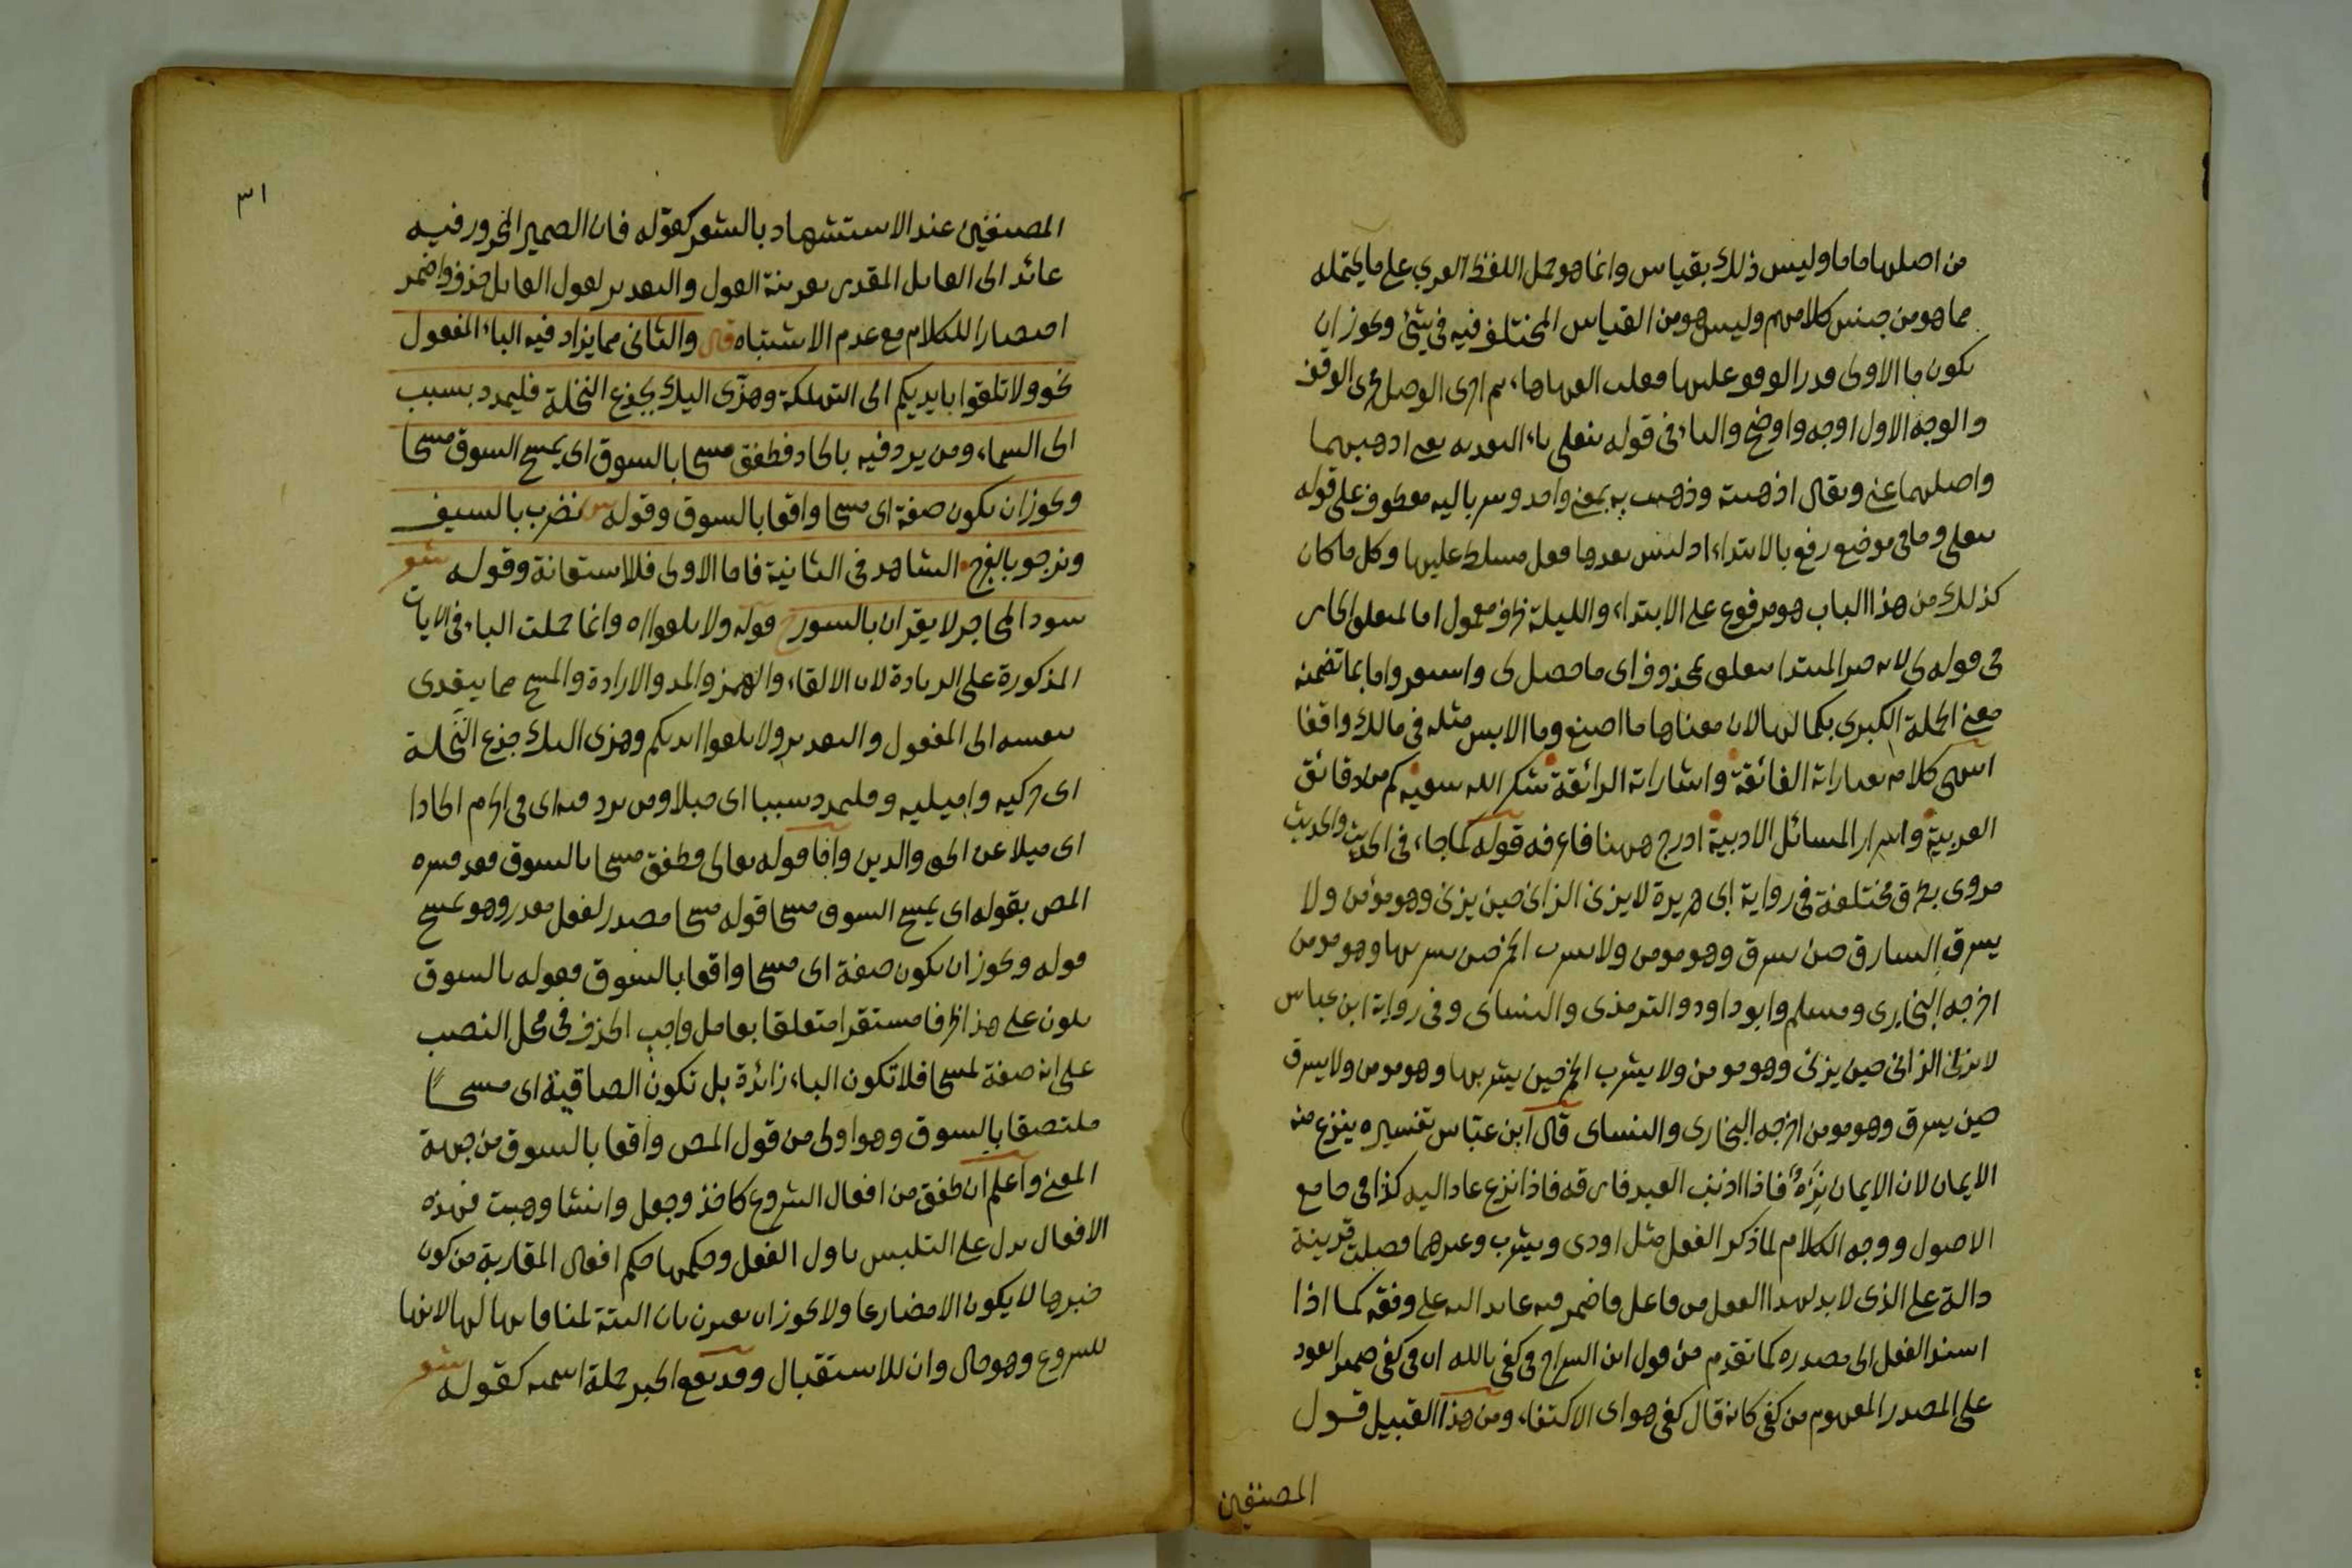 من اصلها ماما وليس ذلك بقياس وانما هو حمل اللفظ العربي على ما يحتمله
مما هو من جنس كلامهم وليس هو من القياس المختلف فيه في شئ ويجوز ان
يكون ما الاولى قدر الوقوف عليها فقلب الفها هاء ثم اجرى الوصل مجرى الوقف
والوجه الاول اوجه واوضح والباء في قوله بنعلي باء التعديه يعنى اذهبهما
واصلهما عنى ويقال اذهبته وذهبت به بمعنى واحد وسرباليه معطوف على قوله
بنعلي وما في موضع رفع بالابتداء اذ ليس بعدها فعل مسلط عليها وكل ما كان
كذلك من هذا الباب هو مرفوع على الابتداء والليلة ظرف معمول اما لمتعلق الجار
في قوله لي لانه خبر المبتدا متعلق بمحذوف اى ما حصل لى واستقر واما بما تضمنه
معنى الجملة الكبرى بكمالها لان معناها ما اصنع وما الابس مثله في مالك واقفا
انتهى كلامه بعباراته الفائقة واشاراته الرائقة شكر الله سعيه كم من دقائق
العربية واسرار المسائل الادبية ادرج ههنا فاعرفه قوله كما جاء في الحديث والحديث
مروى بطرق مختلفة في رواية ابى هريرة لا يزنى الزانى حين يزنى وهو مؤمن ولا
يسرق السارق حين يسرق وهو مومن ولا يشرب الخمر حين يشربها وهو مومن
اخرجه البخارى ومسلم وابو داود والترمذى والنساى وفى رواية ابن عباس
لا يزنى الزانى حين يزنى وهو مومن ولا يشرب الخمر حين يشربها وهو مومن ولا يسرق
حين يسرق وهو مومن اخرجه البخارى والنساى قال ابن عباس تفسيره ينزع منه
الايمان لان الايمان نزه فاذا اذنب العبد فارقه فاذا نزع عاد اليه كذا في جامع
الاصول ووجه الكلام لما ذكر الفعل مثل اودى ويشرب وغيرهما فصلت قرينة
دالة على الذى لابد لهذا الفعل من فاعل فاضمر فيه عايد اليه على وفقه كما اذا
اسند الفعل الى مصدره كما تقدم من قول ابن السراج في كفى بالله ان في كفى ضميرا يعود
على المصدر المفهوم من كفى كانه قال كفى هو اى الاكتفاء ومن هذا القبيل قول
المصنفين
٣١
المصنفين عند الاستشهاد بالشعر كقوله فان الضمير المجرور فيه
عائد الى القايل المقدر بقرينة القول والتقدير لقول القايل حذف واضمر
اختصارا للكلام مع عدم الاشتباه قال والثانى مما يزاد فيه الباء المفعول
نحو ولا تلقوا بايديكم الى التهلكة وهزى اليك بجذع النخلة فليمدد بسبب
الى السماء ومن يرد فيه بالحاد فطفق مسحا بالسوق اى يمسح السوق مسحا
ويجوز ان يكون صفة اى مسحا واقعا بالسوق وقوله نضرب بالسيف
ونرجو بالفرج الشاهد في الثانية فاما الاولى فللاستعانة وقوله شعر
سود المحاجر لا يقران بالسور قوله ولا تلقوا اه وانما حملت الباء في الايات
المذكورة على الزيادة لان الالقاء والهمز والمد والارادة والمسح مما يتعدى
بنفسه الى المفعول والتقدير ولا تلقوا ايديكم وهزى اليك جذع النخلة
اى حركيه واميليه وفليمدد سببا اى حبلا ومن يرد فيه اى في الحرم الحادا
اى ميلا عن الحق والدين واما قوله تعالى وطفق مسحا بالسوق فقد فسره
المص بقوله اى يمسح السوق مسحا قوله مسحا مصدر لفعل مقدر وهو يمسح
قوله ويجوز ان يكون صفة اى مسحا واقعا بالسوق فقوله بالسوق
يكون على هذا ظرفا مستقرا متعلقا بعامل واجب الحذف في محل النصب
على انه صفة لمسحا فلا تكون الباء زائدة بل تكون الصاقية اى مسحًا
ملتصقا بالسوق وهو اولى من قول المص واقعا بالسوق من جهة
المعنى واعلم ان طفق من افعال الشروع كاخذ وجعل وانشا وهبت فهذه
الافعال يدل على التلبس باول الفعل وحكمها حكم افعال المقاربة من كون
خبرها لا يكون الا مضارعا ولا يجوز ان يقترن بان البتة لمنافاتها لها لانها
للشروع وهو حال وان للاستقبال وقد يقع الخبر جملة اسمية كقوله شعر